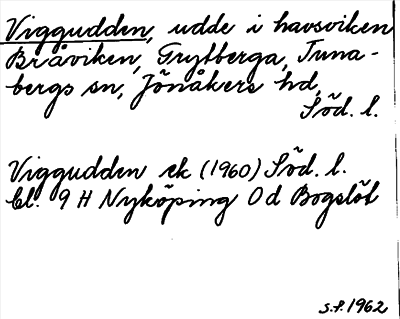 Viggudden, udde i havsviken
Bråviken, Grytberga, Tuna-
bergs sn, Jönåkers hd,
Söd. l.
Viggudden ek (1960) Söd. l.
bl. 9 H Nyköping 0 d Bogslöt
S.P. 1962